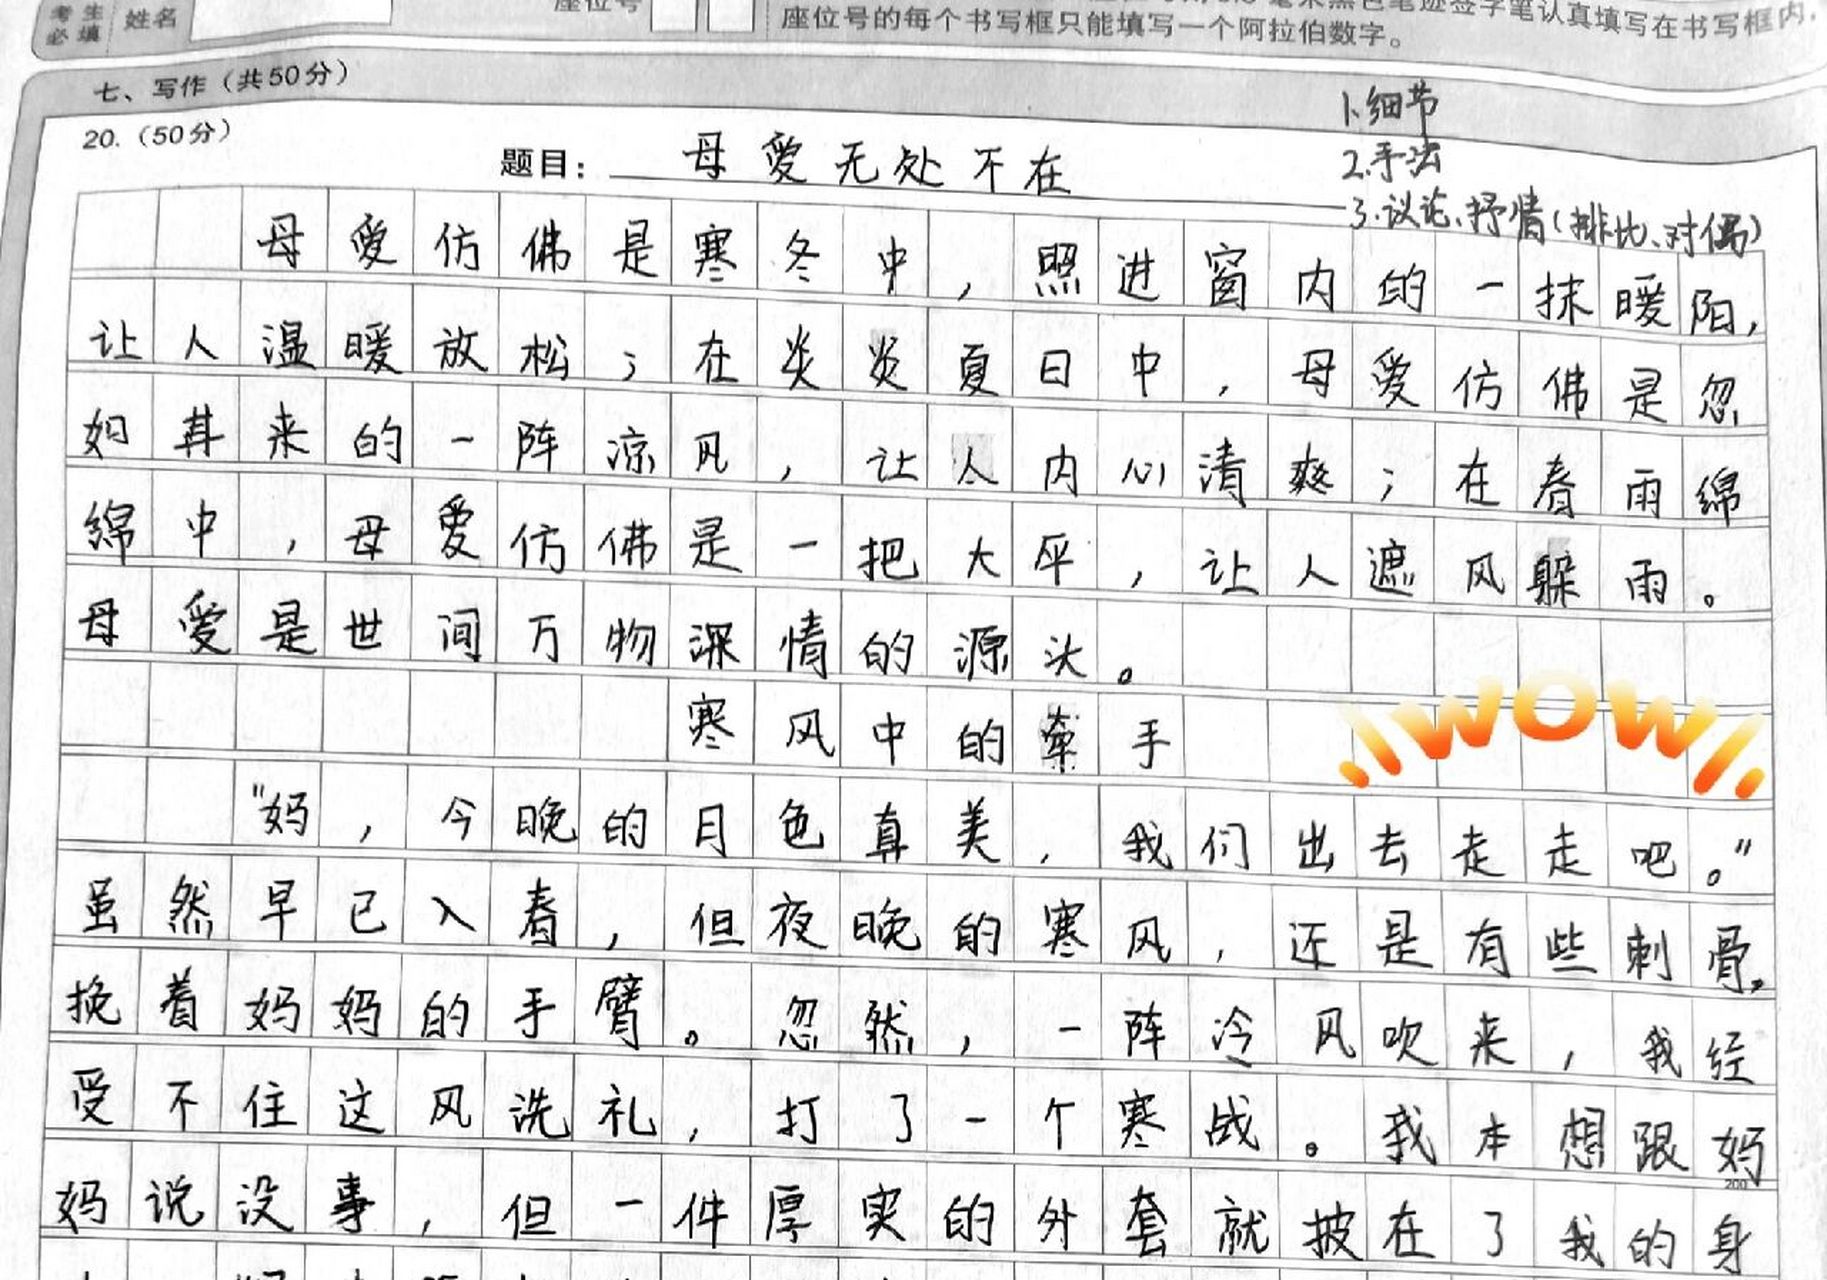 考生
必填
姓名
座位号
座位号的每个书写框只能填写一个阿拉伯数字。
笔认真填写在书写框内,
七、写作（共50分）
20.（50分）
题目：母爱无处不在
1.细节
2.手法
3.议论、抒情(排比、对偶)
母爱仿佛是寒冬中，照进窗内的一抹暖阳，
让人温暖放松；在炎炎夏日中，母爱仿佛是忽
如其来的一阵凉风，让人内心清爽；在春雨绵
绵中，母爱仿佛是一把大伞，让人遮风躲雨。
母爱是世间万物深情的源头。
寒风中的牵手
WOW
"妈，今晚的月色真美，我们出去走走吧。"
虽然早已入春，但夜晚的寒风，还是有些刺骨。
挽着妈妈的手臂。忽然，一阵冷风吹来，我经
受不住这风洗礼，打了一个寒战。我本想跟妈
200
妈说没事，但一件厚实的外套就披在了我的身